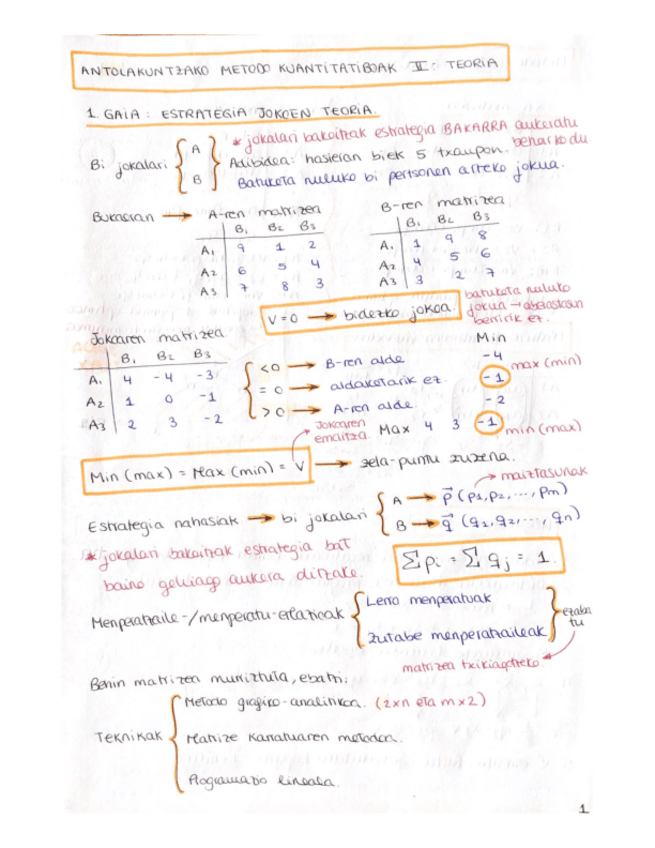 ANTOLAKUNTZAKO METODO KUANTITATIBOAK II: TEORIA
1. GAIA: ESTRATEGIA JOKOEN TEORIA.
* jokalari bakoitzak estrategia BAKARRA aukeratu beharko du.
Bi jokalari { A B
Adibidea: hasieran biek 5 txanpon.
Batuketa nuluko bi pertsonen arteko jokua.
Bukaeran → A-ren matrizea
B1 B2 B3
A1 9 1 2
A2 6 5 4
A3 7 8 3
B-ren matrizea
B1 B2 B3
A1 1 9 8
A2 4 5 6
A3 3 2 7
V=0 → bidezko jokoa.
batuketa nuluko
jokua →
berririk ez.
Jokoaren matrizea
B1 B2 B3
A1 4 -4 -3
A2 1 0 -1
A3 2 3 -2
<0 → B-ren alde
=0 → aldaketarik ez.
>0 → A-ren alde.
Min
-4
-1 max (min)
-2
Max 4 3 -1 min (max)
Jokoaren
emaitza.
Min (max) = Max (min) = V → zela-puntu zuzena.
maiztasunak
Estrategia nahasiak → bi jokalari
A → p⃗ (p1, p2, ..., pm)
B → q⃗ (q1, q2, ..., qn)
* jokalari bakoitzak estrategia bat
baino gehiago aukera ditzake.
∑ pi = ∑ qj = 1.
Menperatzaile-/menperatu-erlazioak
Lerro menperatuak
Zutabe menperatzaileak
ezabatu
matrizea txikiagotzeko.
Behin matrizea murriztuta, ebatzi:
Teknikak
Metodo grafiko-analitikoa. (2xn eta mx2)
Matrize karratuaren metodoa.
Programazio lineala.
1